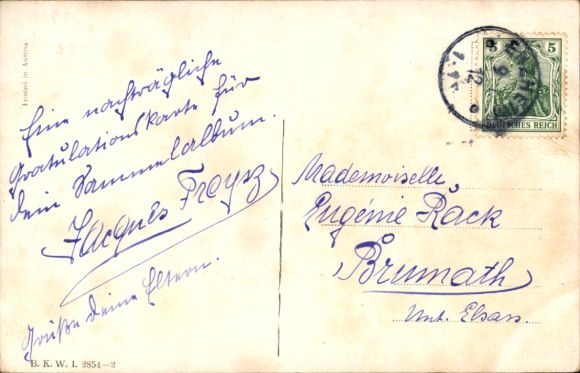 Printed in Austria
Eine nachträgliche
Gratulationskarte für
dein Sammelalbum.
Jacques Freysz
Grüße deine Eltern.
B. K. W. I. 2854—2
5
DEUTSCHES REICH
Mademoiselle
Eugénie Räck
Brumath
Unt. Elsass.